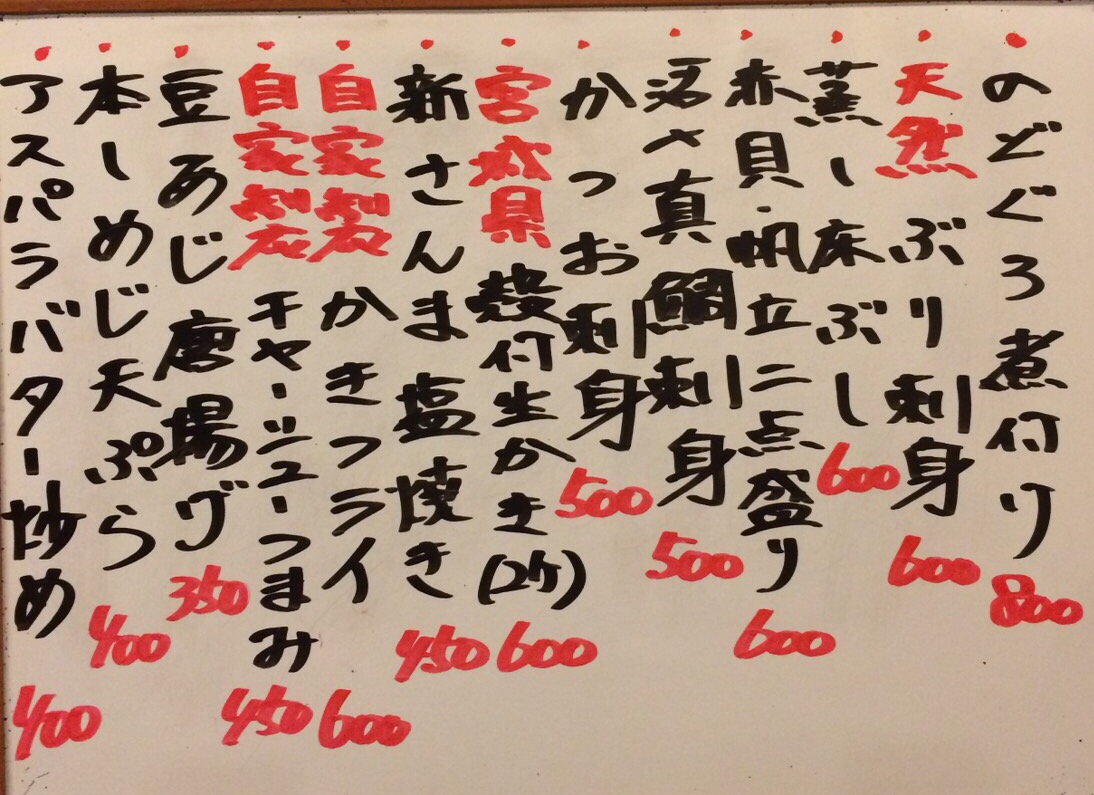 ・のどぐろ煮付け 800
・天然ぶり刺身 600
・蒸し床ぶし 600
・赤貝・帆立二点盛り 600
・活〆真鯛刺身 500
・かつお刺身 500
・宮城県殻付生かき(2ケ) 600
・新さんま塩焼き 450
・自家製かきフライ 600
・自家製チャーシューつまみ 450
・豆あじ唐揚げ 350
・本しめじ天ぷら 400
・アスパラバター炒め 400